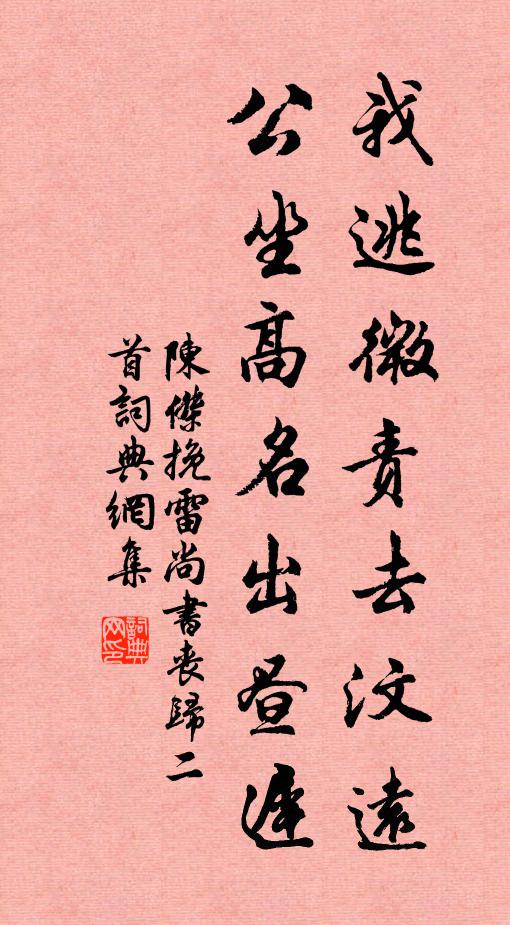 我逃微責去汶遠
公坐高名出晝遲
陳傑挽雷尚書喪歸二
首詞典網集
詞典
网印